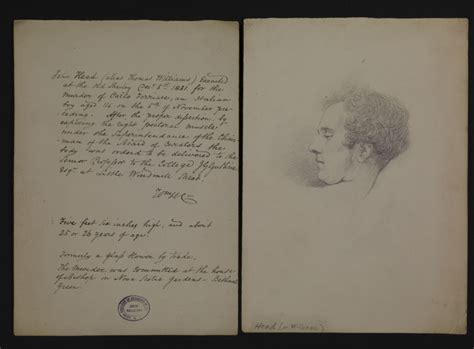 John Head (alias Thomas Williams) Executed
at the old Bailey Decr 5th 1831. for the
murder of Carlo Ferrier, an Italian
boy aged 14 on the 5th of November pre-
ceding. After the proper dissection, by
exposing the right pectoral muscle
under the Superintendance of the Chair-
man of the Board of Curators the
body was ordered to be delivered to the
Senior Professor to the College J G Guthrie
Esqr. at Little Windmill Street.
Five feet six inches high, and about
25 or 26 years of age.
Formerly a Glass Blower by trade.
The Murder was committed at the house
of Bishop in Nova Scotia Gardens - Bethnal
Green
Head (or Williams)